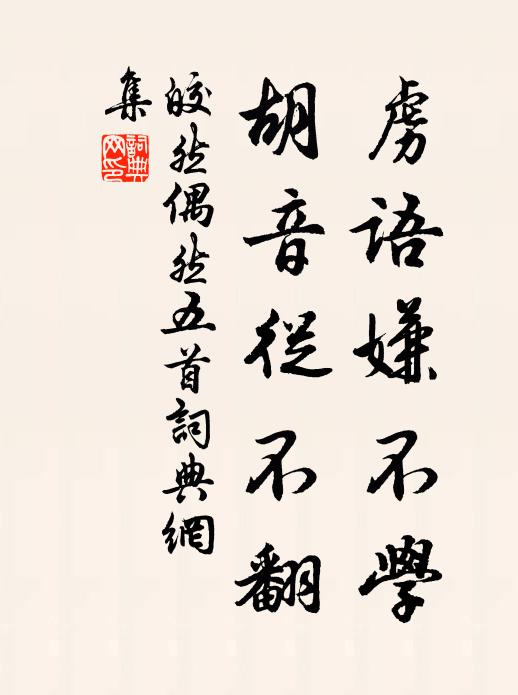 虜語嫌不學
胡音從不翻
皎然偶然五首詞典網
集
詞典
网印